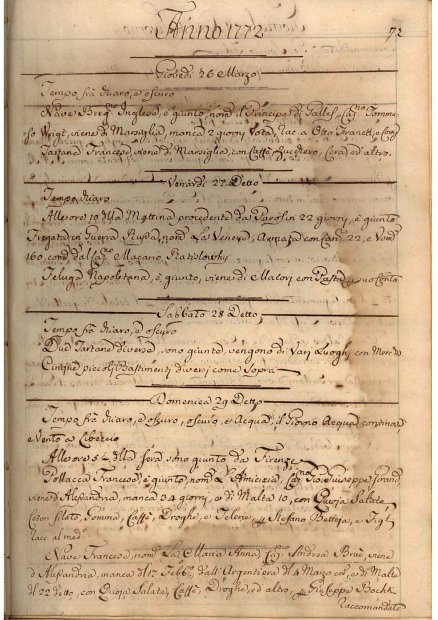 Anno 1772
72
Giovedi 26 Marzo
Tempo frà chiaro, e oscuro
Nave Inglese, è giunto, nom il Principe di Galles Tomma-
so viene di Marsiglia, manca 2 giorni Vota, Rac. a Otto Franck, e
Tartana Francese, viene di Marsiglia, con Caffè, Zucchero, Cera, ed altro.
Venardi 27 Detto
Tempo chiaro
Alle ore 10 della Mattina procedente da Paros in 22 giorni, è giunto
Fregata in Guerra Russa, nom La Venere, Armata con Can 22, e Uom
160, com dal Macario
Feluga Napoletana, è giunto, viene di con Pasta suo Conto
Sabbato 28 Detto
Tempo frà chiaro, e oscuro
Due Tartane diverse, sono giunte, vengono di Varj Luoghi, con Merce
Cinque piccoli Bastimenti diversi come Sopra
Domenica 29 Detto
Tempo frà chiaro, e oscuro, oscuro, e Acqua, il Giorno Acqua continova
e Vento a Libeccio
Alle ore 5 della Sera sono giunto da Firenze
Pollacca Francese, è giunto, nom L'Amicizia Gio. Giuseppe
viene d'Alessandria, manca 34 giorni, e di Malta 10, con Quoja Salate
Coton filato, Gomma, Caffè, Droghe, e Telerie Stefano e Figl
Rac. al med.
Nave Francese, nom La Maria Anna, Andrea viene
d'Alessandria, manca del 17 Febb. dall'Argentiera del 4 Marzo e di Malta
del 22 detto, con Quoja Salate, Caffè, Droghe, ed altro, Giuseppe
raccomandato